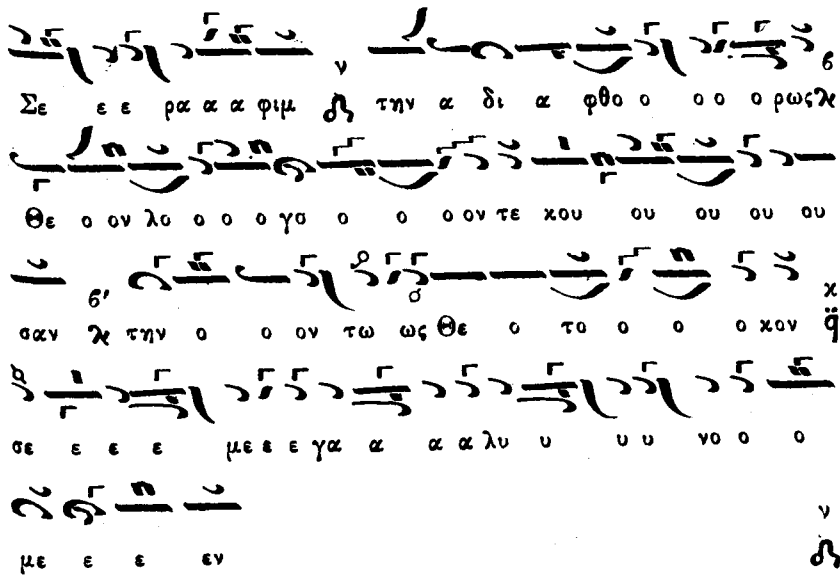 Σε ε ε ρα α α φιμ ν την α δι α φθο ο ο ο ο ρως β
Θε ο ον λο ο ο ο γο ο ο ο ον τε κου ου ου ου ου
σαν β' την ο ο ον τω ως Θε ο το ο ο ο κον κ
σε ε ε ε με ε ε γα α α α λυ υ υ υ νο ο ο
με ε ε εν ν